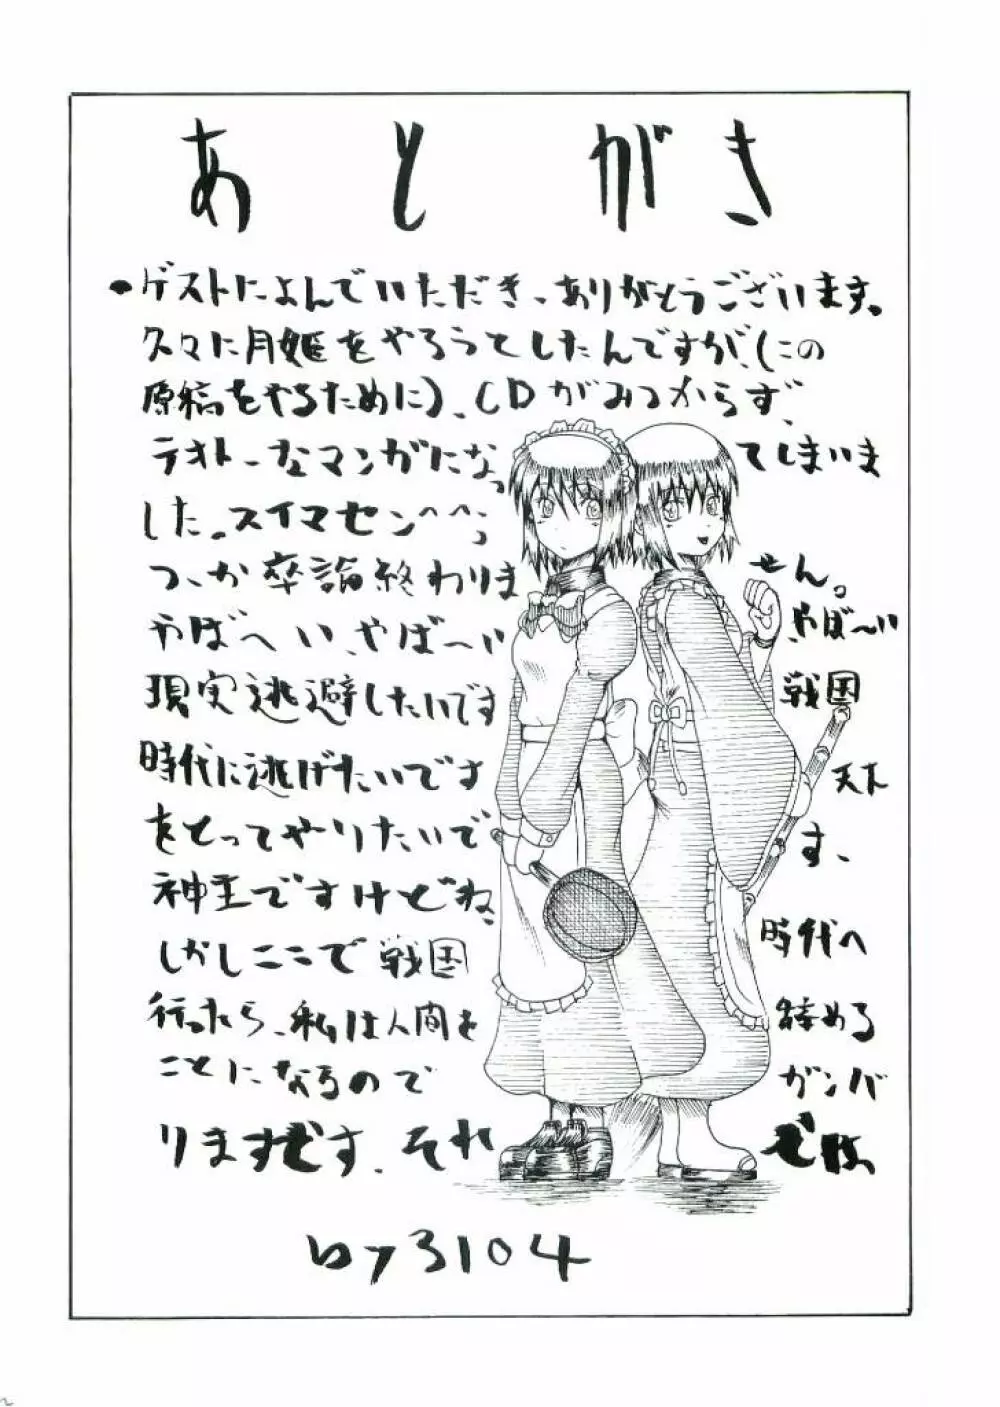 あとがき
・ゲストによんでいただき、ありがとうございます。
久々に月姫をやろうとしたんですが、(この
原稿をやるために)、CDがみつからず、
テオトーなマンガになってしまいま
した。スイマセン^^;
つーか卒論終わりません。
やばへい、やば〜いやば〜い
現実逃避したいです戦国
時代に逃げたいです天下
をとってやりたいです、
神主ですけどね、
しかしここで戦国時代へ
行ったら、私は人間を辞める
ことになるのでガンバ
りますです、それでは。
by3104